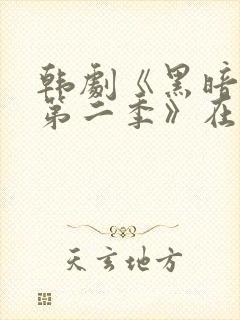 韩剧《黑暗
第二季》在
天玄地方